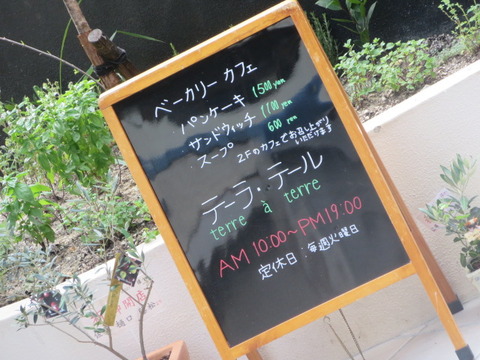 ベーカリー カフェ
・パンケーキ 1500 yen
・サンドウィッチ 1100 yen
・スープ 600 yen
2Fのカフェでお召し上がり
いただけます
テーラ・テール
terre à terre
AM 10:00~PM 19:00
定休日:毎週火曜日
開店
樋口